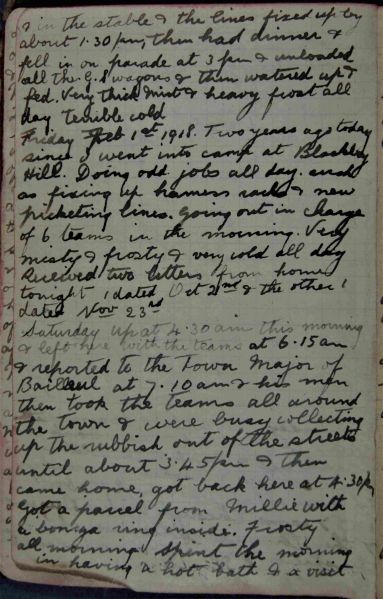 & in the stable & the lines fixed up by
about 1.30 pm, then had dinner &
fell in on parade at 3 pm & unloaded
all the G.S wagons & then watered up &
fed. Very thick mist & heavy frost all
day terrible cold
Friday Feb 1st 1918. Two years ago today
since I went into camp at Blackboy
Hill. Doing odd jobs all day. such
as fixing up harness racks & new
picketing lines. going out in charge
of 6 teams in the morning. Very
misty & frosty & very cold all day
Received two letters from home
tonight 1 dated Oct 2nd & the other 1
dated Nov 23rd
Saturday up at 4.30 am this morning
& left here with the teams at 6.15 am
& reported to the Town Major of
Bailleul at 7.10 am & his men
then took the teams all around
the town & were busy collecting
up the rubbish out of the streets
until about 3.45 pm & then
came home, got back here at 4.30 pm
Got a parcel from Millie with
a ring inside. Frosty
all morning spent the morning
in having a hot bath & a visit